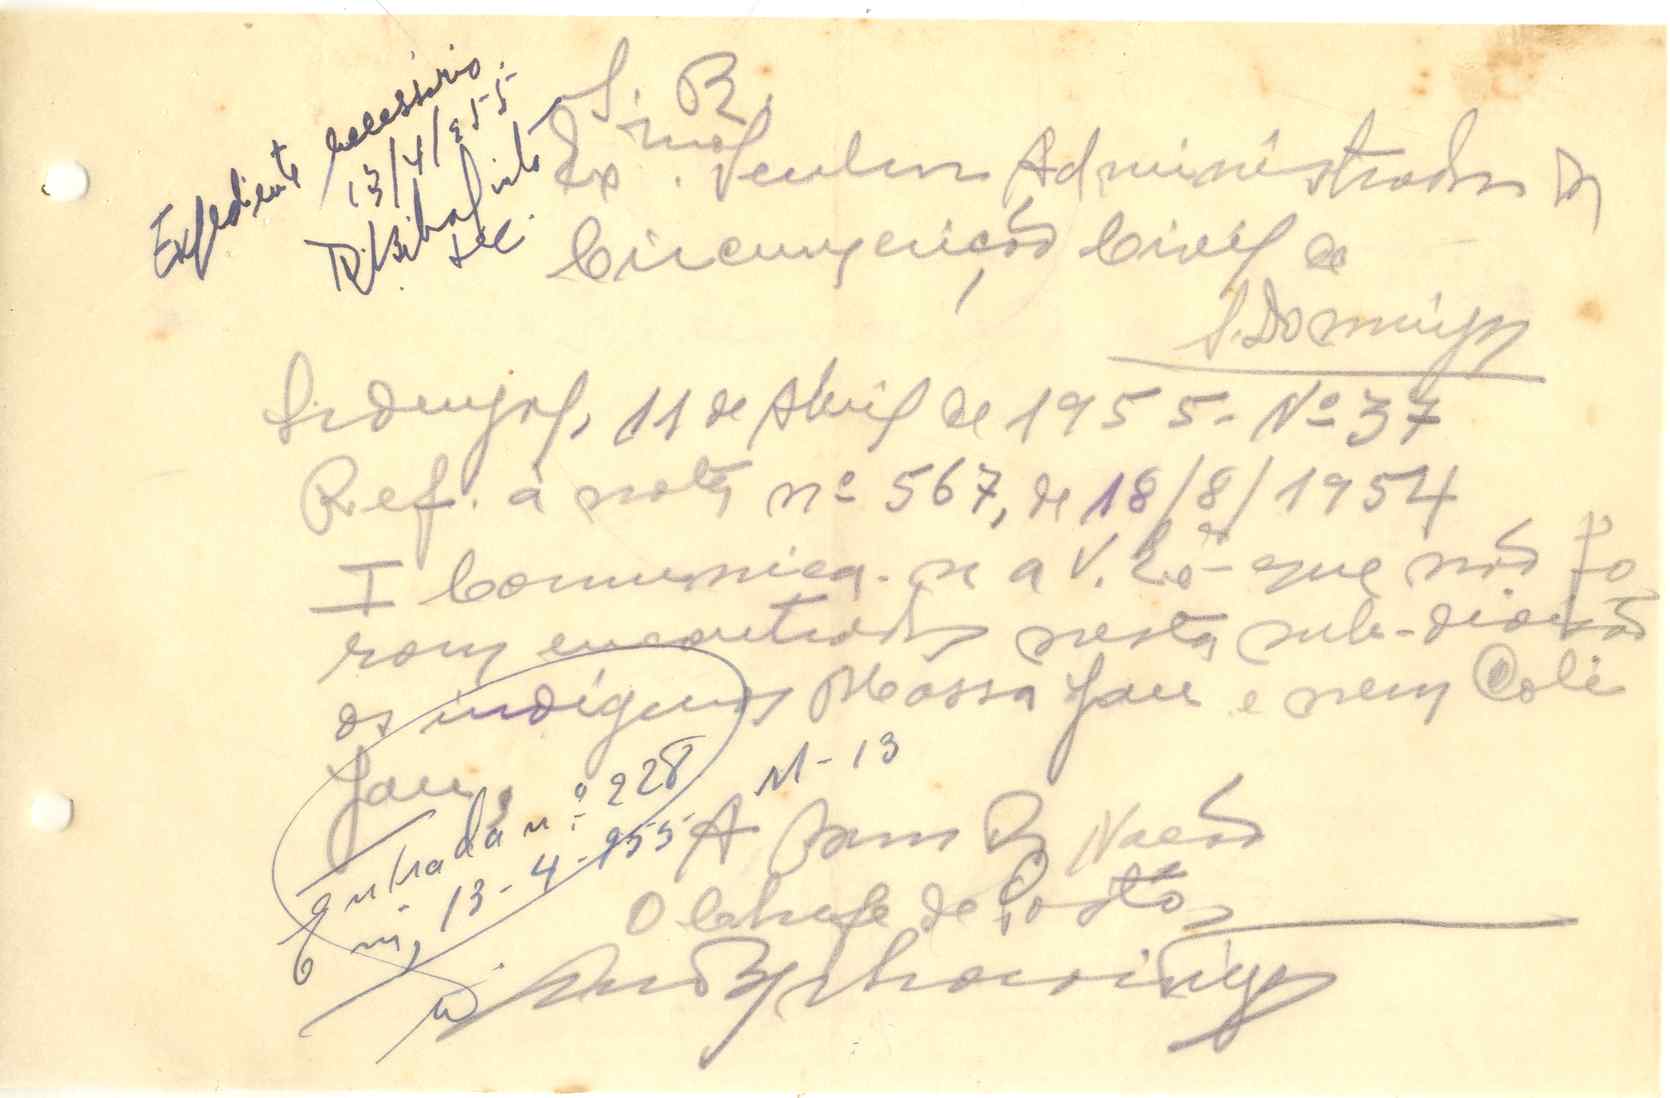 Expediente necessário.
13/4/955
S. R.
Ex.mo Senhor Administrador da
Circunscrição Civil de
S. Domingos
Sedengal, 11 de Abril de 1955- Nº 37
Ref. à nota nº 567, de 18/8/1954
I Comunica-se a V. Exª que não fo
ram encontrados nesta sub-divisão
os indígenas Mássa Jau e nem Coli
Jau.
Entrada nº 228 M-13
13-4-955
A Bem da Nação
O Chefe de Posto,